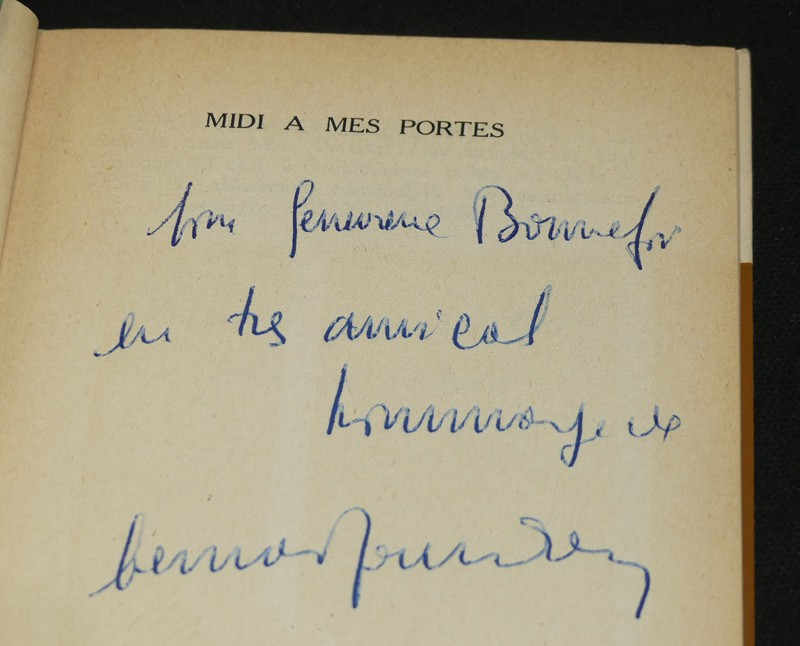 MIDI A MES PORTES
Pour Geneviève Bonnefoi
en très amical
hommage de
bernard